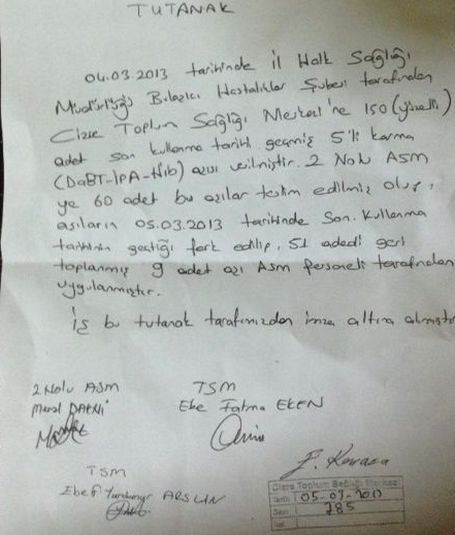 TUTANAK
04.03.2013 tarihinde il Halk Sağlığı
Müdürlüğü Bulaşıcı Hastalıklar Şubesi tarafından
Cizre Toplum Sağlığı Merkezi'ne 150 (yüzelli)
adet son kullanma tarihi geçmiş 5'li karma
(DaBT-İPA-Hib) aşısı verilmiştir. 2 Nolu ASM
ye 60 adet bu aşılar teslim edilmiş olup,
aşıların 05.03.2013 tarihinde Son. Kullanma
tarihinin geçtiği fark edilip, 51 adedi geri
toplanmış 9 adet aşı Asm personeli tarafından
uygulanmıştır.
İş bu tutanak tarafımızdan imza altına alınmıştır
2 Nolu ASM
TSM
Ebe Fatma EKEN
TSM
Ebe ARSLAN
Cizre Toplum Sağlığı Merkezi
Tarih
Sayı 285